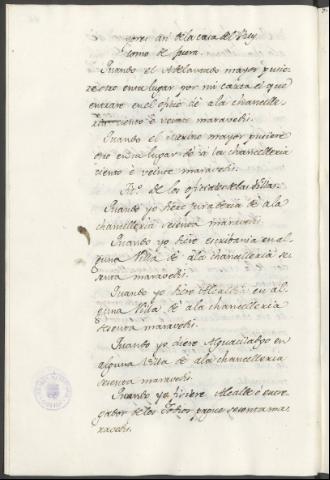 yores asi de la casa del Rey
como de fuera.
Quando el Adelantado mayor pusie-
re otro en su lugar por mi carta el que
entrare en el oficio dé a la chancille-
ria ciento e veinte maravedis.
Quando el merino mayor pusiere
otro en su lugar dé a la chancilleria
ciento e veinte maravedis.
de los oficiales de las Villas.
Quando yo fiere juraderia dé a la
chancilleria sesenta maravedis.
Quando yo fiere escribania en al-
guna Villa dé a la chancilleria se-
senta maravedis.
Quando yo fiere Alcaldia en al-
guna Villa dé a la chancilleria
sesenta maravedis.
Quando yo diere Alguacilazgo en
alguna Villa dé a la chancilleria
sesenta maravedis.
Quando yo ficiere Alcalde o entre-
gador de los peche sesenta ma-
ravedis.